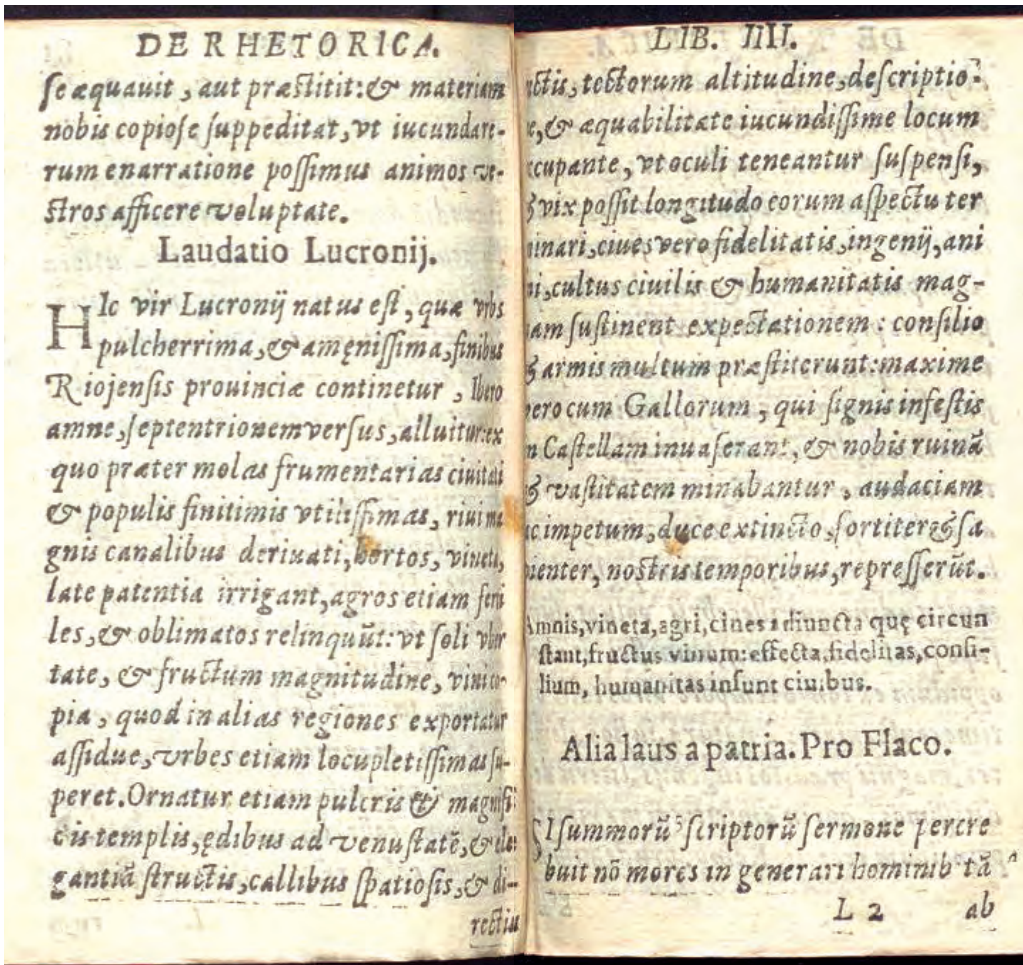 DE RHETORICA.
se æquauit, aut præstitit: & materiam
nobis copiose suppeditat, vt iucunda re-
rum enarratione possimus animos ve-
stros afficere voluptate.
Laudatio Lucronij.
HIc vir Lucronij natus est, quæ vrbs
pulcherrima, & amęnissima, finibus
Riojensis prouinciæ continetur, Ibero
amne, septentrionem versus, alluitur: ex
quo præter molas frumentarias ciuitati
& populis finitimis vtilissimas, riui ma
gnis canalibus deriuati, hortos, vineta,
late patentia irrigant, agros etiam ferti
les, & oblimatos relinquūt: vt soli vber
tate, & fructum magnitudine, vini co-
pia, quod in alias regiones exportatur
assidue, vrbes etiam locupletissimas su-
peret. Ornatur etiam pulcris & magnifi
cis templis, ędibus ad venustatē, & ele-
gantiā structis, callibus spatiosis, & di-
rectius
LIB. IIII.
ctis, tectorum altitudine, descriptio-
e, & æquabilitate iucundissime locum
cupante, vt oculi teneantur suspensi,
& vix possit longitudo eorum aspectu ter
minari, ciues vero fidelitatis, ingenij, ani
mi, cultus ciuilis & humanitatis mag-
nam sustinent expectationem: consilio
& armis multum præstiterunt: maxime
vero cum Gallorum, qui signis infestis
in Castellam inuaserant, & nobis ruinā
& vastitatem minabantur, audaciam
ac impetum, duce extincto, fortiter & sa
pienter, nostris temporibus, represserūt.
Amnis, vineta, agri, ciues adiuncta quę circun
stant, fructus vinum: effecta, fidelitas, consi-
lium, humanitas insunt ciuibus.
Alia laus a patria. Pro Flaco.
SI summorū scriptorū sermone percre
buit nō mores in generari hominib' tā
L 2 ab